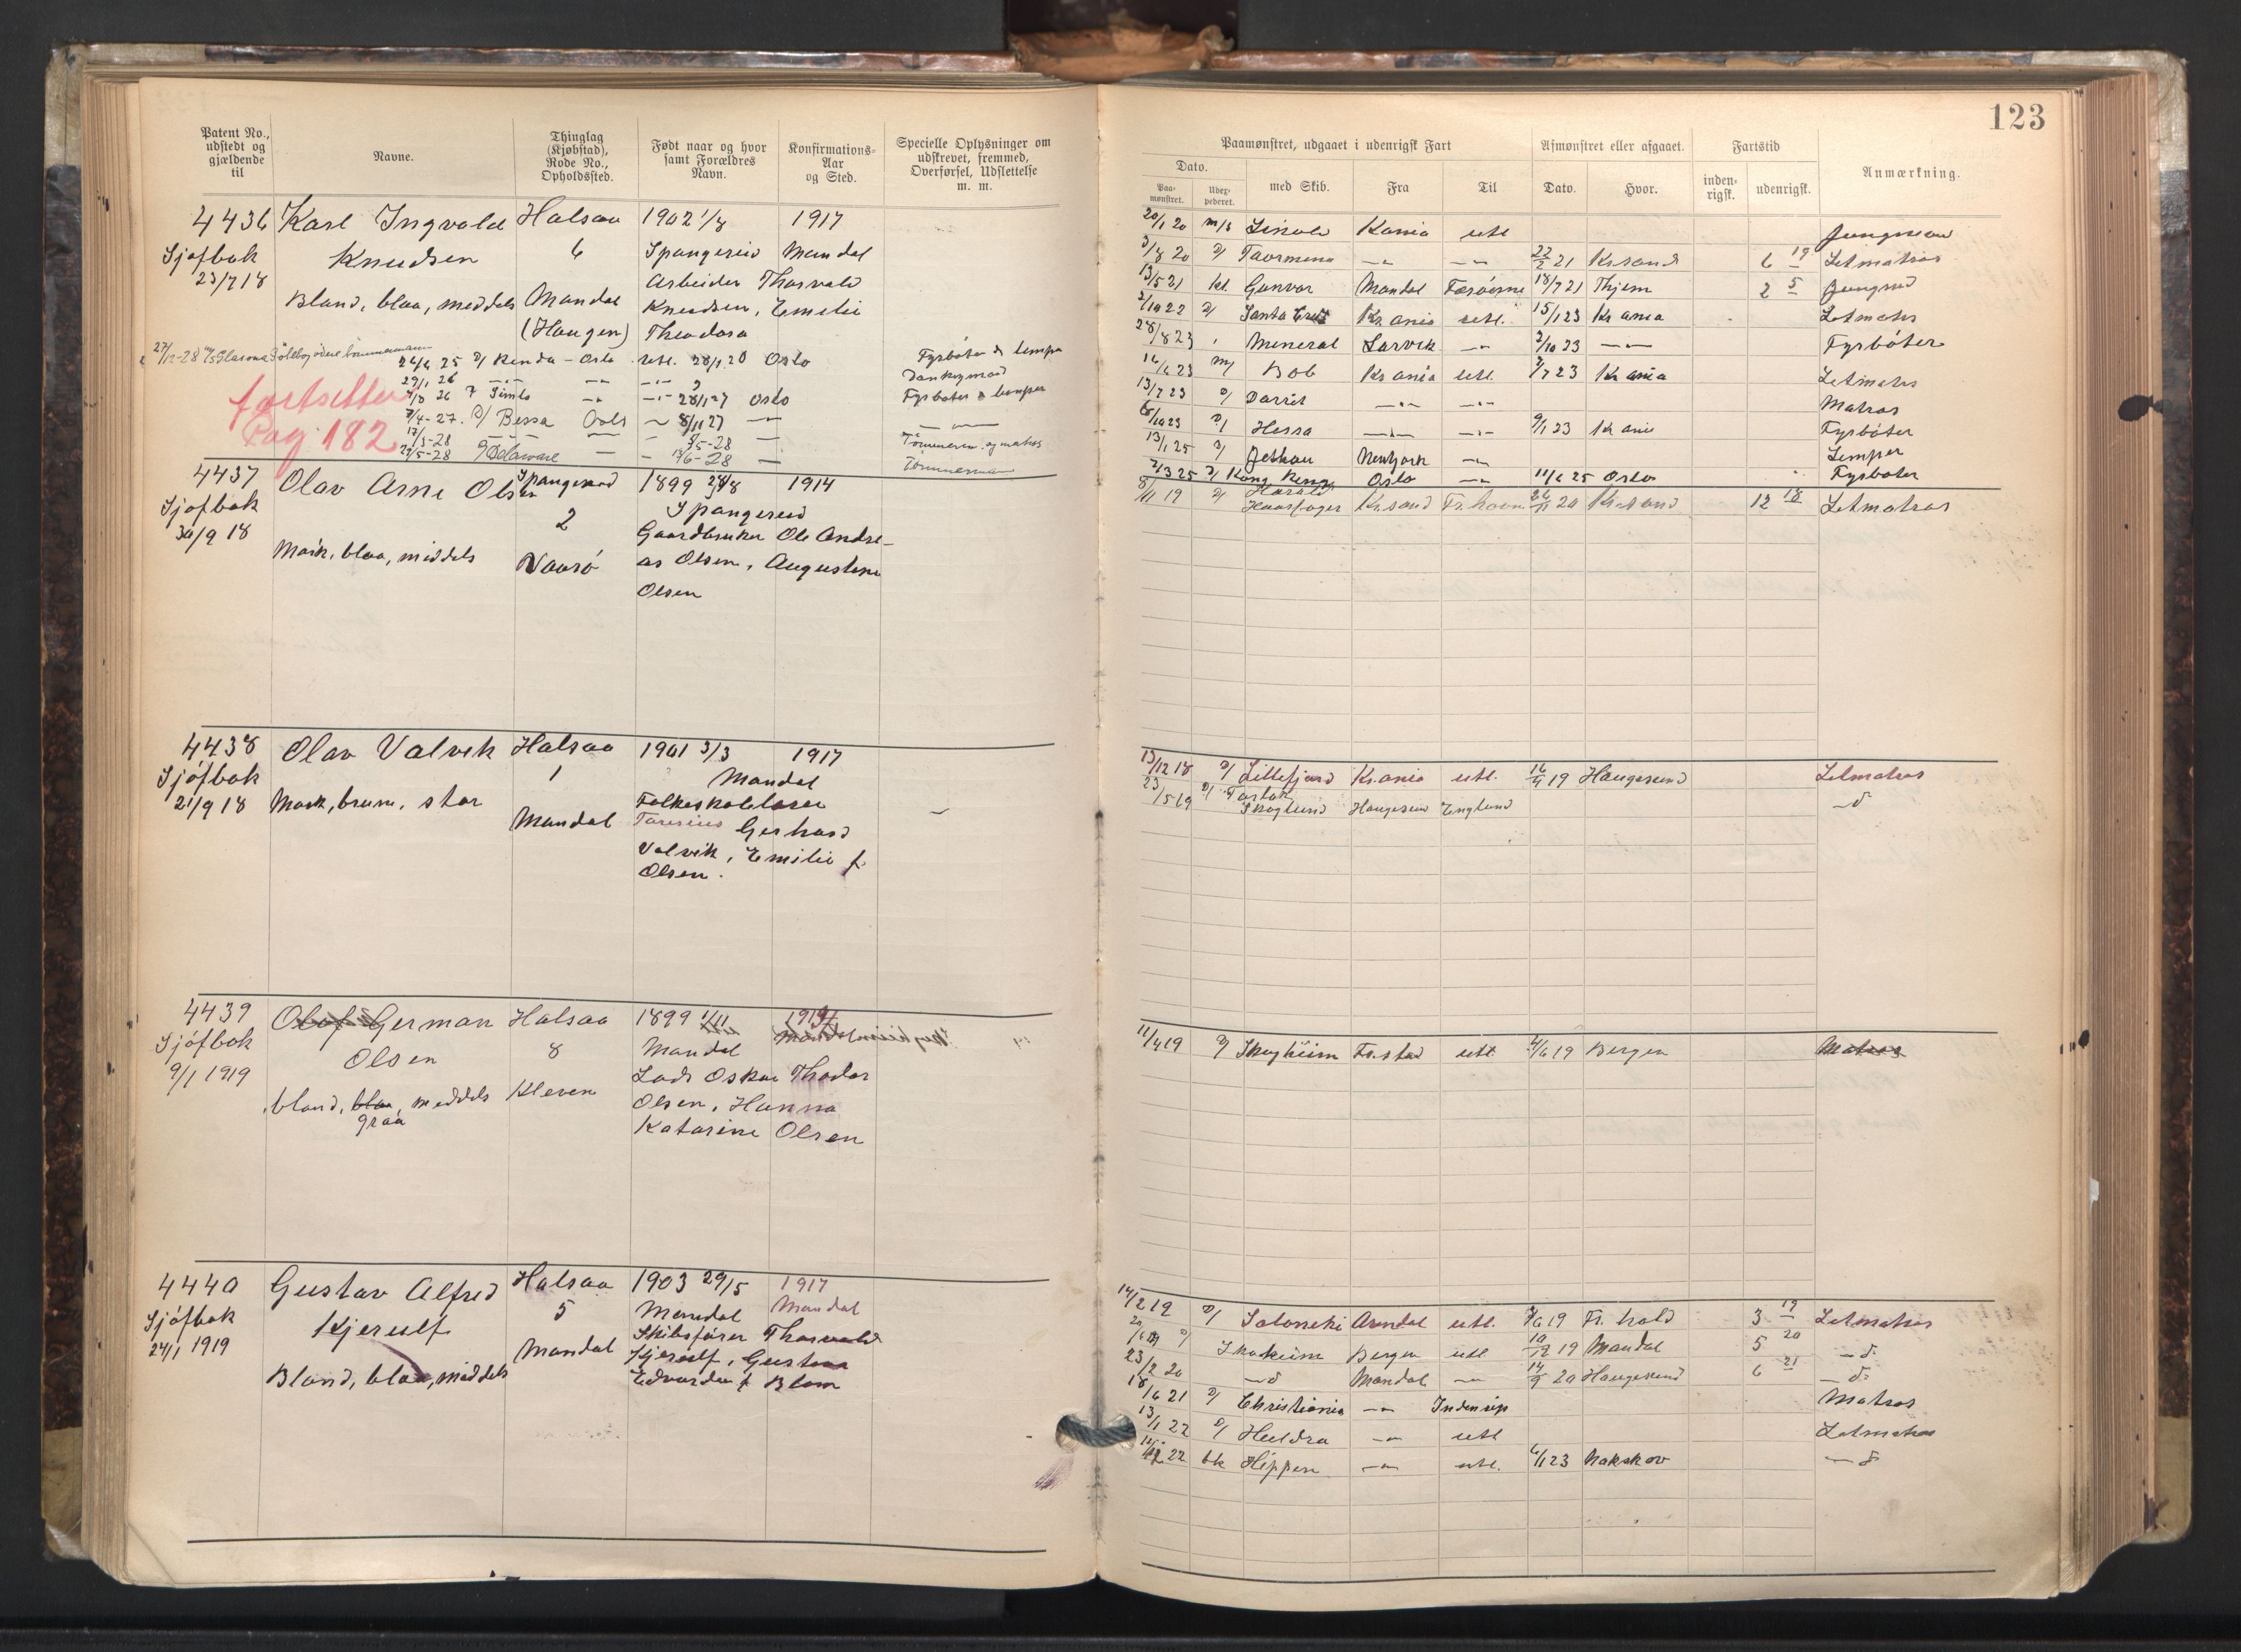 Patent No., udstedt og gjældende til
Navne.
Thinglag (Kjøbstad), Rode No., Opholdssted.
Født naar og hvor samt Forældres Navn.
Konfirmations-Aar og Sted.
Specielle Oplysninger om udskrevet, fremmed, Overførsel, Udslettelse m. m.
4436 Karl Ingvald Halsaa 1902 1/8 1917
Sjøfbok Knudsen 6 Spangereid Mandal
23/7 18 Arbeider Thorvald
Blond, blaa, middels Mandal Knudsen, Emilie
(Haugen) Theodora
27/12-28
24/6 25 D/ Kenda - Oslo utl. 28/1 26 Oslo Fyrbøter & lemper
29/1 26 Dankeymand
26 Simla 28/1 27 Oslo Fyrbøter & lemper
/4-27. D/ Bessa Oslo 8/11 27
17/3-28 /5-28 Tømmerm. og matros
22/5-28 Delaware /6-28 Tømmermann
fortsetter
Pag 182
4437 Olav Arne Olsen Spangereid 1899 1914
Sjøfbok 2 Spangereid
30/9 18 Gaardbruker Ole Andre-
Mørk, blaa, middels Vaarø as Olsen, Augustine
Olsen
4438 Olav Valvik Halsaa 1901 3/3 1917
Sjøfbok 1 Mandal
21/9 18 Mørk, brun, stor Folkeskolelærer
Mandal Gerhard
Valvik, Emilie f.
Olsen.
4439 Olaf German Halsaa 1899 1/11 1914
Sjøfbok Olsen 8 Mandal Mandal
9/1 1919 Lods Oskar Thodor
blond, blaa, middels Kleven Olsen, Hanna
graa
Katarine Olsen
4440 Gustav Alfred Halsaa 1903 29/5 1917
Sjøfbok Kjerulf 5 Mandal Mandal
24/1 1919 Skibsfører Thorvald
Mandal Kjerulf, Gustava
Blond, blaa, middels Edvarda f. Blom
123
Paamønstret, udgaaet i udenrigsk Fart
Afmønstret eller afgaaet.
Fartstid
Anmærkning.
Dato.
Paa-mønstret.
Uder-pederet.
med Skib.
Fra
Til
Dato.
Hvor.
inden-rigsk.
udenrigsk.
20/1 20 m/s Kania utl Jungmand
3/8 20 D/ Taormina 22/2 21 Kr.sand 6 19 Letmatros
13/5 21 kt. Gunvor Mandal Færøerne 18/7 21 Thjem 2 5 Jungmd
/10 22 D/ Santa Cruz Kr ania utl. 15/1 23 Kr ania Letmatros
28/8 23 Mineral Larvik 2/10 23 Fyrbøter
16/6 23 m/ Bob Kr ania utl. /7 23 Kr ania Letmatros
13/7 23 D/ Matros
/10 23 D/ Hessa 9/1 23 Kr ania Fyrbøter
13/1 25 D/ Newyork Lemper
2/3 25 D/ Kong Ring Oslo 11/6 25 Oslo Fyrbøter
8/11 19 D/ Harald Haarfager Kr.sand Fr.havn 26/11 20 Kr.sand 12 18 Letmatros
13/12 18 D/ Lillefjord Kr.ania utl. 16/4 19 Haugesund Letmatros
23/5 19 D/ Skoglund Haugesun England d
11/4 19 D/ Skogheim Fr.stad utl. /6 19 Bergen Matros
14/2 19 D/ Saloneki Arendal utl. /6 19 Fr. hald 3 19 Letmatros
20/6 19 D/ Skoheim Bergen utl 10/12 19 Mandal 5 20 d.
23/2 20 d Mandal 14/9 20 Haugesund 6 21 d.
18/6 21 D/ Christiania Indenrigs Matros
13/1 22 D/ Huldra utl Letmatros
22 bk Hippen utl. 6/1 23 Nakskov d